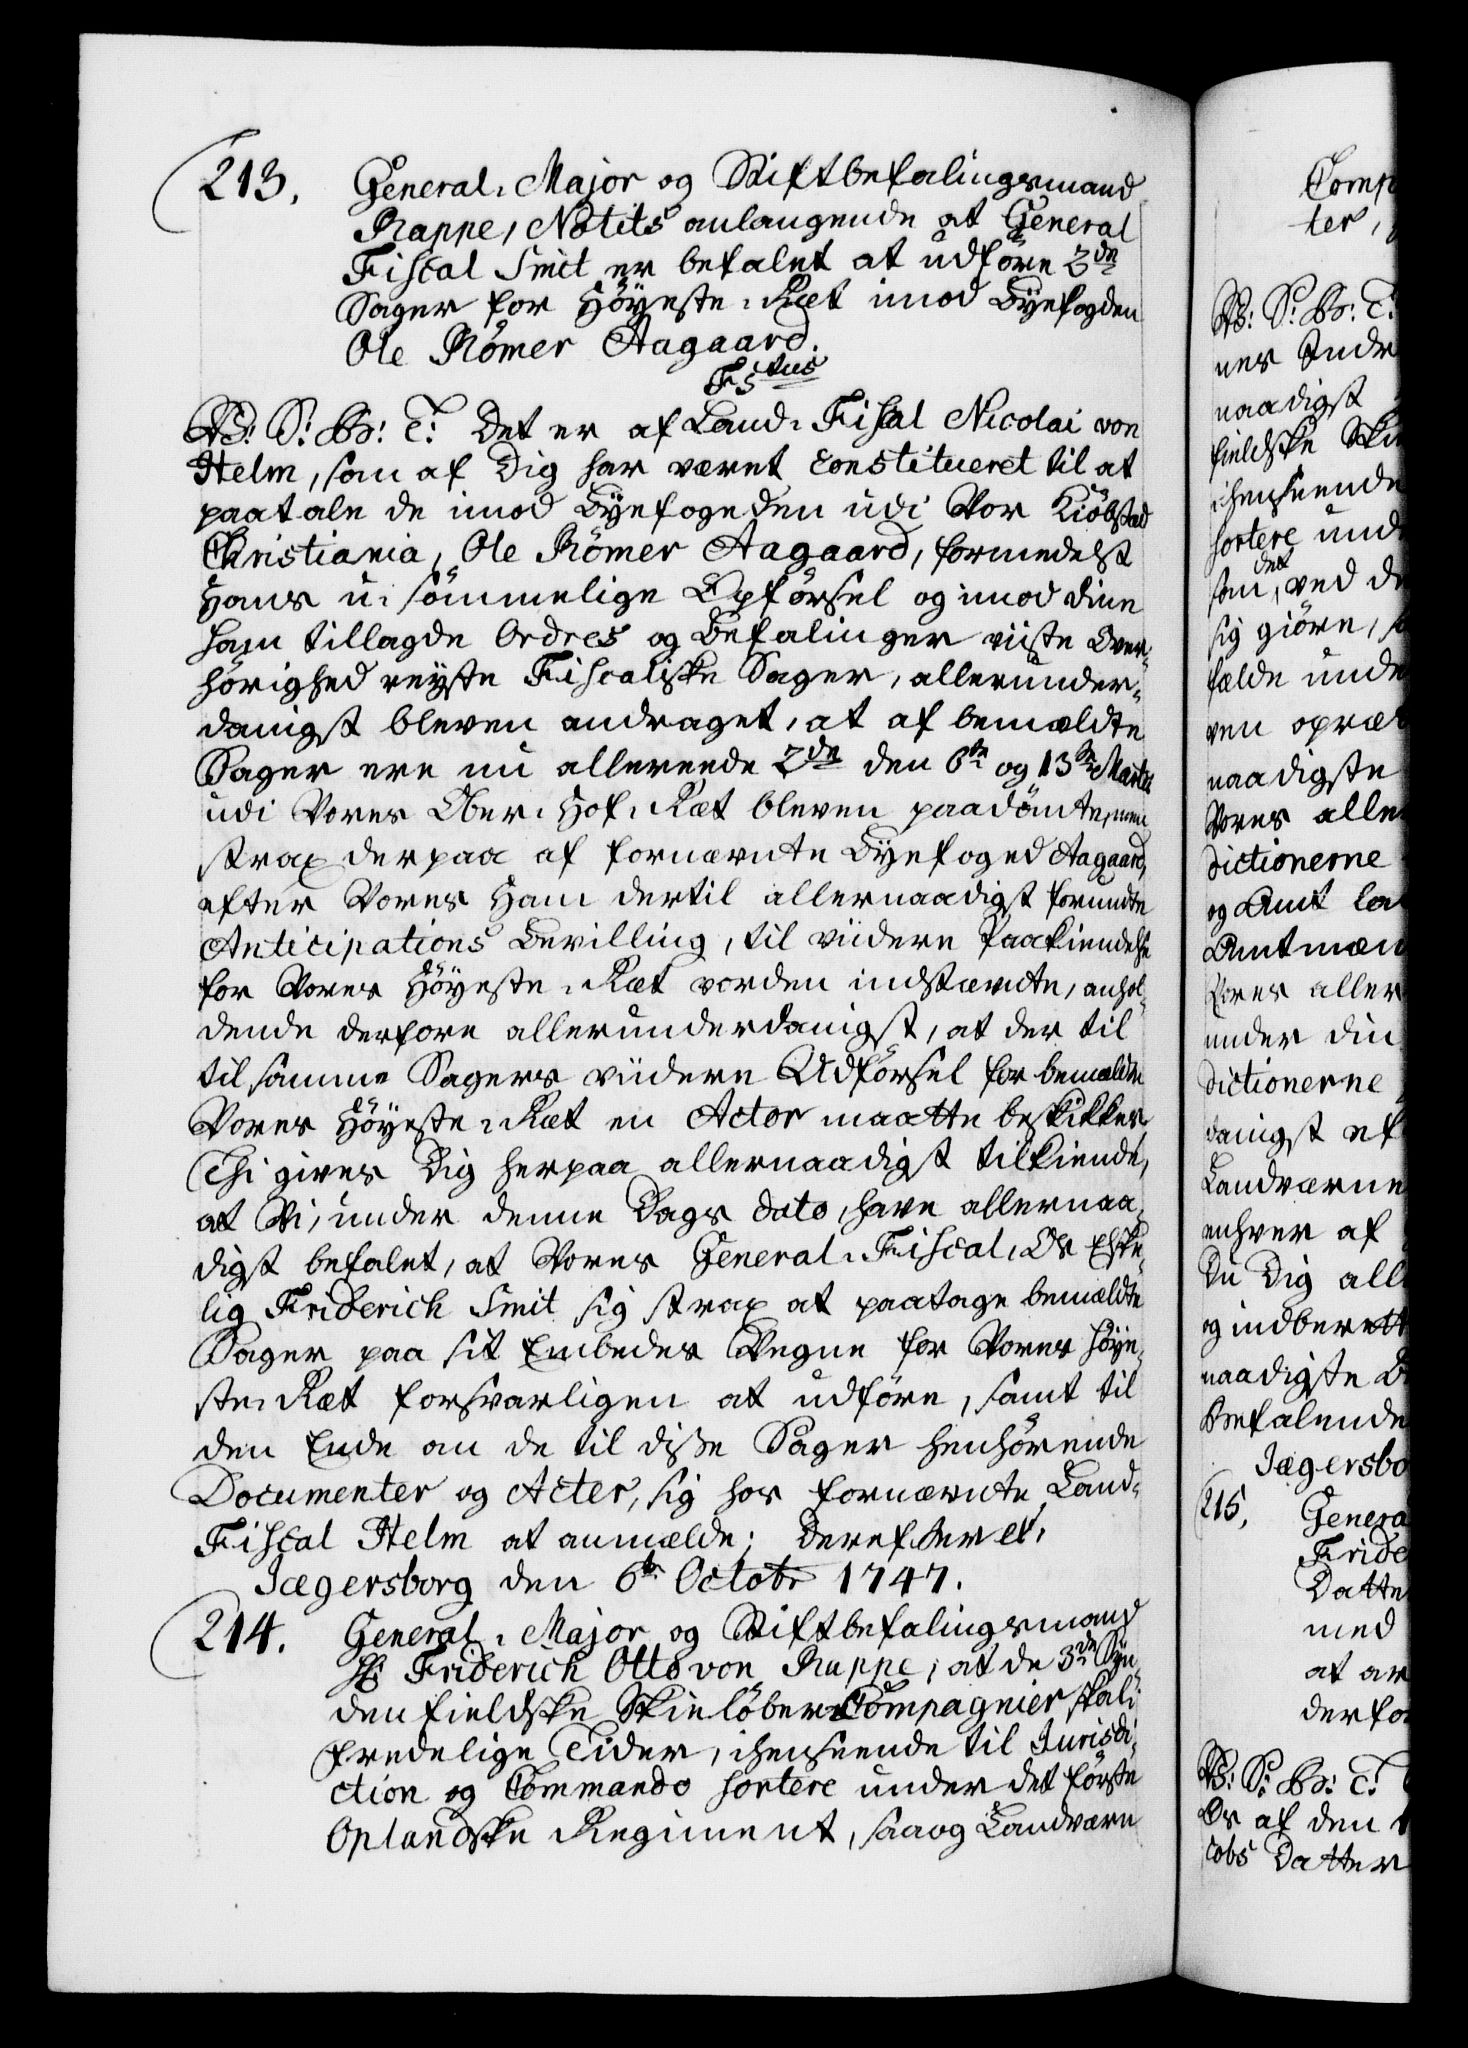 213. General-Major og Stiftbefalingsmand
Rappe, Notits anlangende at General
Fiscal Smit er befalet at udføre 2de
Sager for Höyeste-Ræt imod Byefogden
Ole Römer Aagaard.
F5tus
Vs: S: Br: T: Det er af Land-Fiscal Nicolai von
Helm, som af Dig har været constitueret til at
paatale de imod Byefogeden udi Vor Kiöbstad
Christiania, Ole Römer Aagaard, formedelst
Hans u-sömmelige Opförsel og imod dine
ham tillagde Ordres og Befalinger viiste Over-
hörighed reyste Fiscaliske Sager, allerunder-
danigst bleven andraget, at af bemældte
Sager ere nu allereede 2de den 6te og 13de Martii
udi Vores Ober-Hof-Ræt bleven paadömte, men
strax derpaa af fornævnte Byefoged Aagaard,
efter Vores Ham dertil allernaadigst forundte
Anticipations Bevilling, til viidere Paakiendelse
for Vores Höyeste-Ræt vorden indstævnte, anhol-
dende derfore allerunderdanigst, at der til
til samme Sagers viidere Udförsel for bemældte
Vores Höyeste-Ræt en Actor maatte beskikkes
Thi gives Dig herpaa allernaadigst tilkiende,
at Vi, under denne Dags dato, have allernaa-
digst befalet, at Vores General-Fiscal, Os Elske-
lig Friderich Smit sig strax at paatage bemældte
Sager paa sit Embedes Vegne for Vores Höye-
ste-Ræt forsvarligen at udföre, samt til
den Ende om de til disse Sager henhörende
Documenter og Acter, sig hos fornævnte Land-
Fiscal Helm at anmælde; Derefter et,
Jægersborg den 6te Octobr 1747.
214. General-Major og Stiftbefalingsmand
Hr Friderich Otto von Rappe, at de 3de Syn-
denfieldske Skielöber Compagnier skal i
fredelige Tider, i henseende til Jurisdi-
ction og Commando sortere under det förste
Oplandske Regiment, saa og Landværn
Comp
ter,
Vs: S: Br: T:
nes Indr
naadigst
fieldske Ski
i henseende
sortere und
som det, ved de
sig giöre, s
fælde unde
ven opræt
naadigste
Vores aller
dictionerne
og Amt la
Amtmæn
Vores aller
under din
dictionerne
danigst ef
Landværne
enhver af
Du Dig all
og indberett
naadigste B
Befalende
Jægersbo
215, Genera
Fride
Datte
med
at ar
derfor
Vs: S: Br: T:
Os af den
cobs Datter